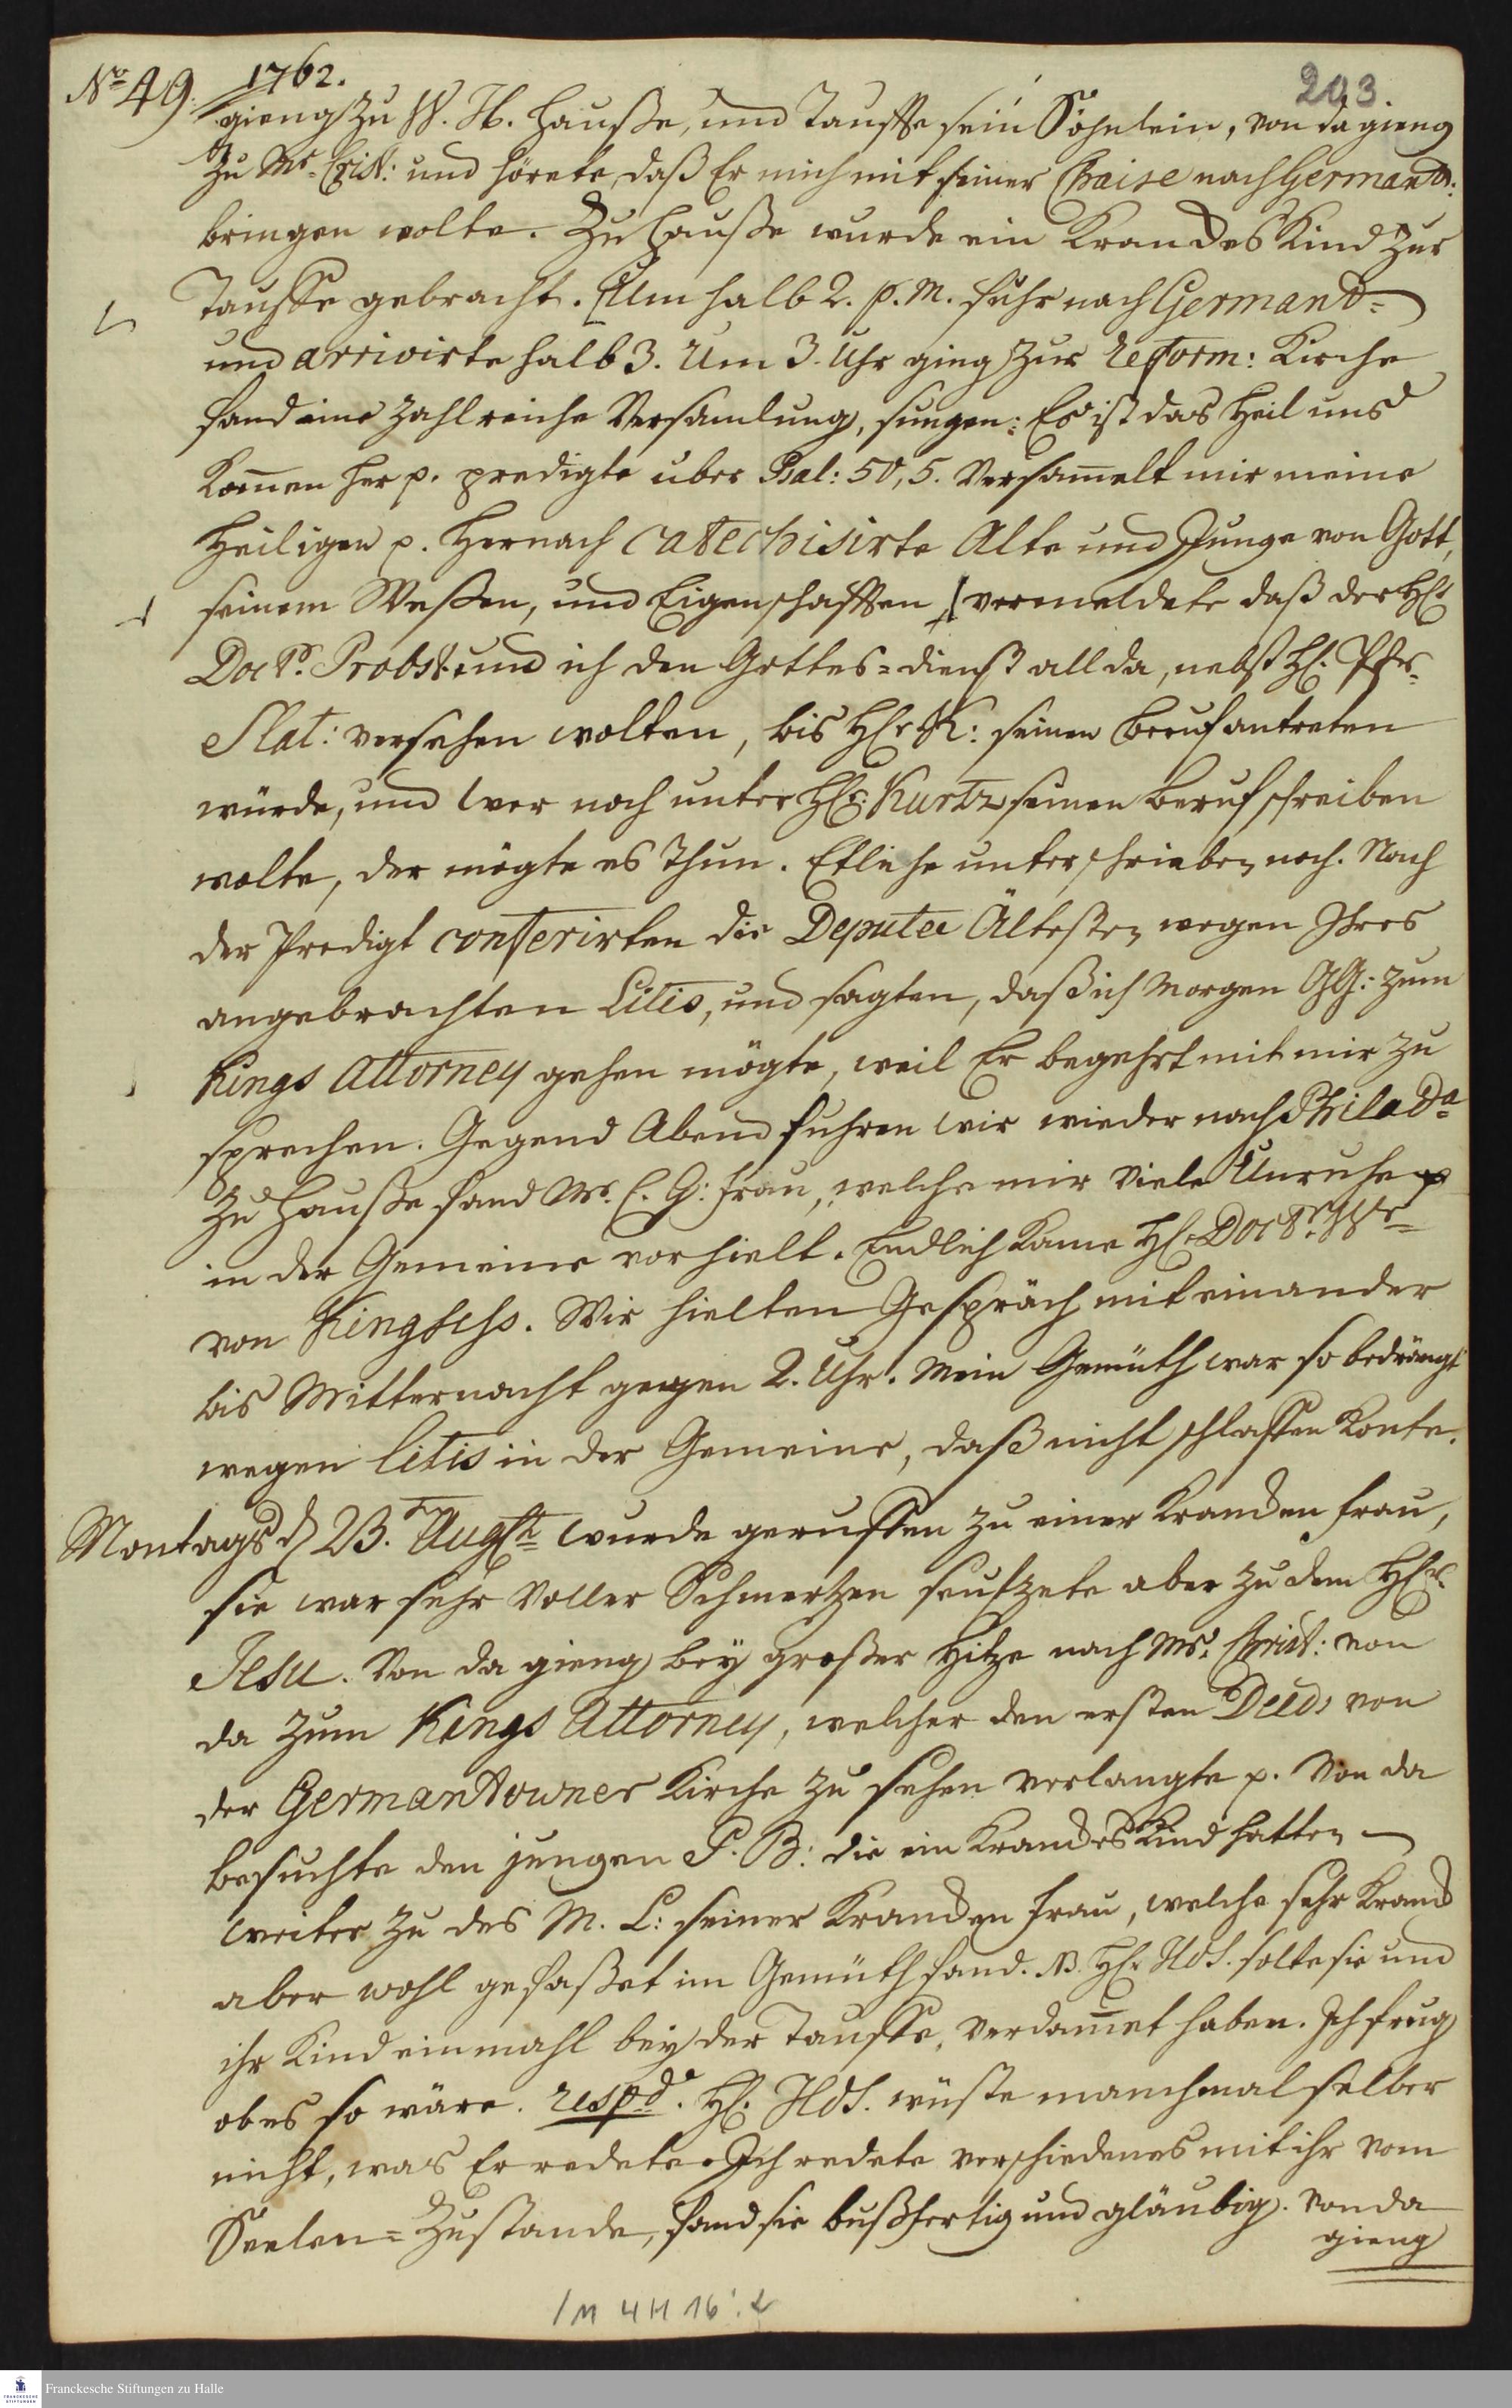 No 49. 1762.
203.
gieng zu W. H. Hauße, und Tauffte sein Söhnlein, von da gieng
zu Mr Crist: und hörete, daß Er mich mit seiner Chaise nach Germant:
bringen wolte. Zu Hauße wurde ein Krandes Kind zur
Tauffe gebracht. Um halb 2. p. m. fuhr nach Germant=
und arrivirte halb 3. Um 3. Uhr ging zur reform: Kirche
fand eine zahlreiche Versamlung, sungen: Es ist das Heil uns
kom̄en her p. predigte über Psal: 50, 5. Versam̄elt mir meine
Heiligen p. Hernach catechisirte Alte und Junge von Gott,
seinem Weßen, und Eigenschafften [vermeldete daß der H\Er
Doctr. Probst und ich den Gottes=dienst allda, nebst H\E. Pfr.
Slat: versehen wolten, bis H\Er K: seinen Beruf antreten
würde, und wer noch unter H\Er: Kurtz seinen Beruf schreiben
wolte, der mögte es thun. Etliche unterschrieben noch. Nach
der Predigt conferirten die Deputee Ältesten wegen Ihres
angebrachten Litis, und sagten, daß ich Morgen GG: zum
Kings Attorney gehen mögte, weil Er begehrt mit mir zu
sprechen. Gegend Abend fuhren wir wieder nach Philada
Zu Hauße fand Mr. C. G: Frau, welche mir viele Unruhe p
in der Gemeine vorhielt. Endlich kame H\Er Doctr. Wr=
von Kingsess. Wir hielten Gespräch mit einander
bis Mitternacht gegen 2. Uhr. Mein Gemüth war so bedrängt
wegen litis in der Gemeine, daß nicht schlaffen konte.
Montags d 23. Augst wurde geruffen zu einer Kranden Frau,
sie war sehr voller Schmertzen seufzete aber zu dem H\Ern
Jesu. Von da gieng bey großer Hitze nach Mr. Christ: von
da zum Kings Attorney, welcher den ersten Deeds von
der Germantowner Kirche zu sehen verlangte p. Von da
besuchte den jungen P. B: die ein Krandes Kind hatten
weiter zu des M. L: seiner Kranden Frau, welche sehr Krand
aber wohl gefaßet im Gemüth fand. NB. H\Er Hds. solte sie und
ihr Kind einmahl bey der Tauffe, verdam̄et haben. Ich frug
ob es so wäre. respd. H\E. Hds. wüste manchmal selber
nicht, was Er redete. Ich redete verschiedenes mit ihr vom
Seelen=Zustande, fand sie bußfertig und gläubig. Von da
gieng
/M 4 H 16 :
Franckesche Stiftungen zu Halle